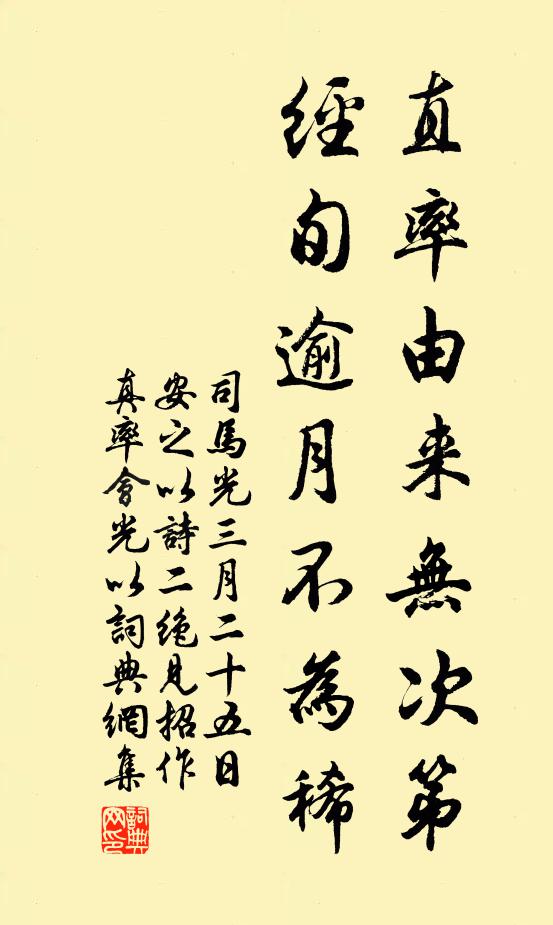 直率由来無次第
經旬逾月不為稀
司馬光三月二十五日
安之以詩二絶見招作
真率會光以詞典網集
詞典
网印